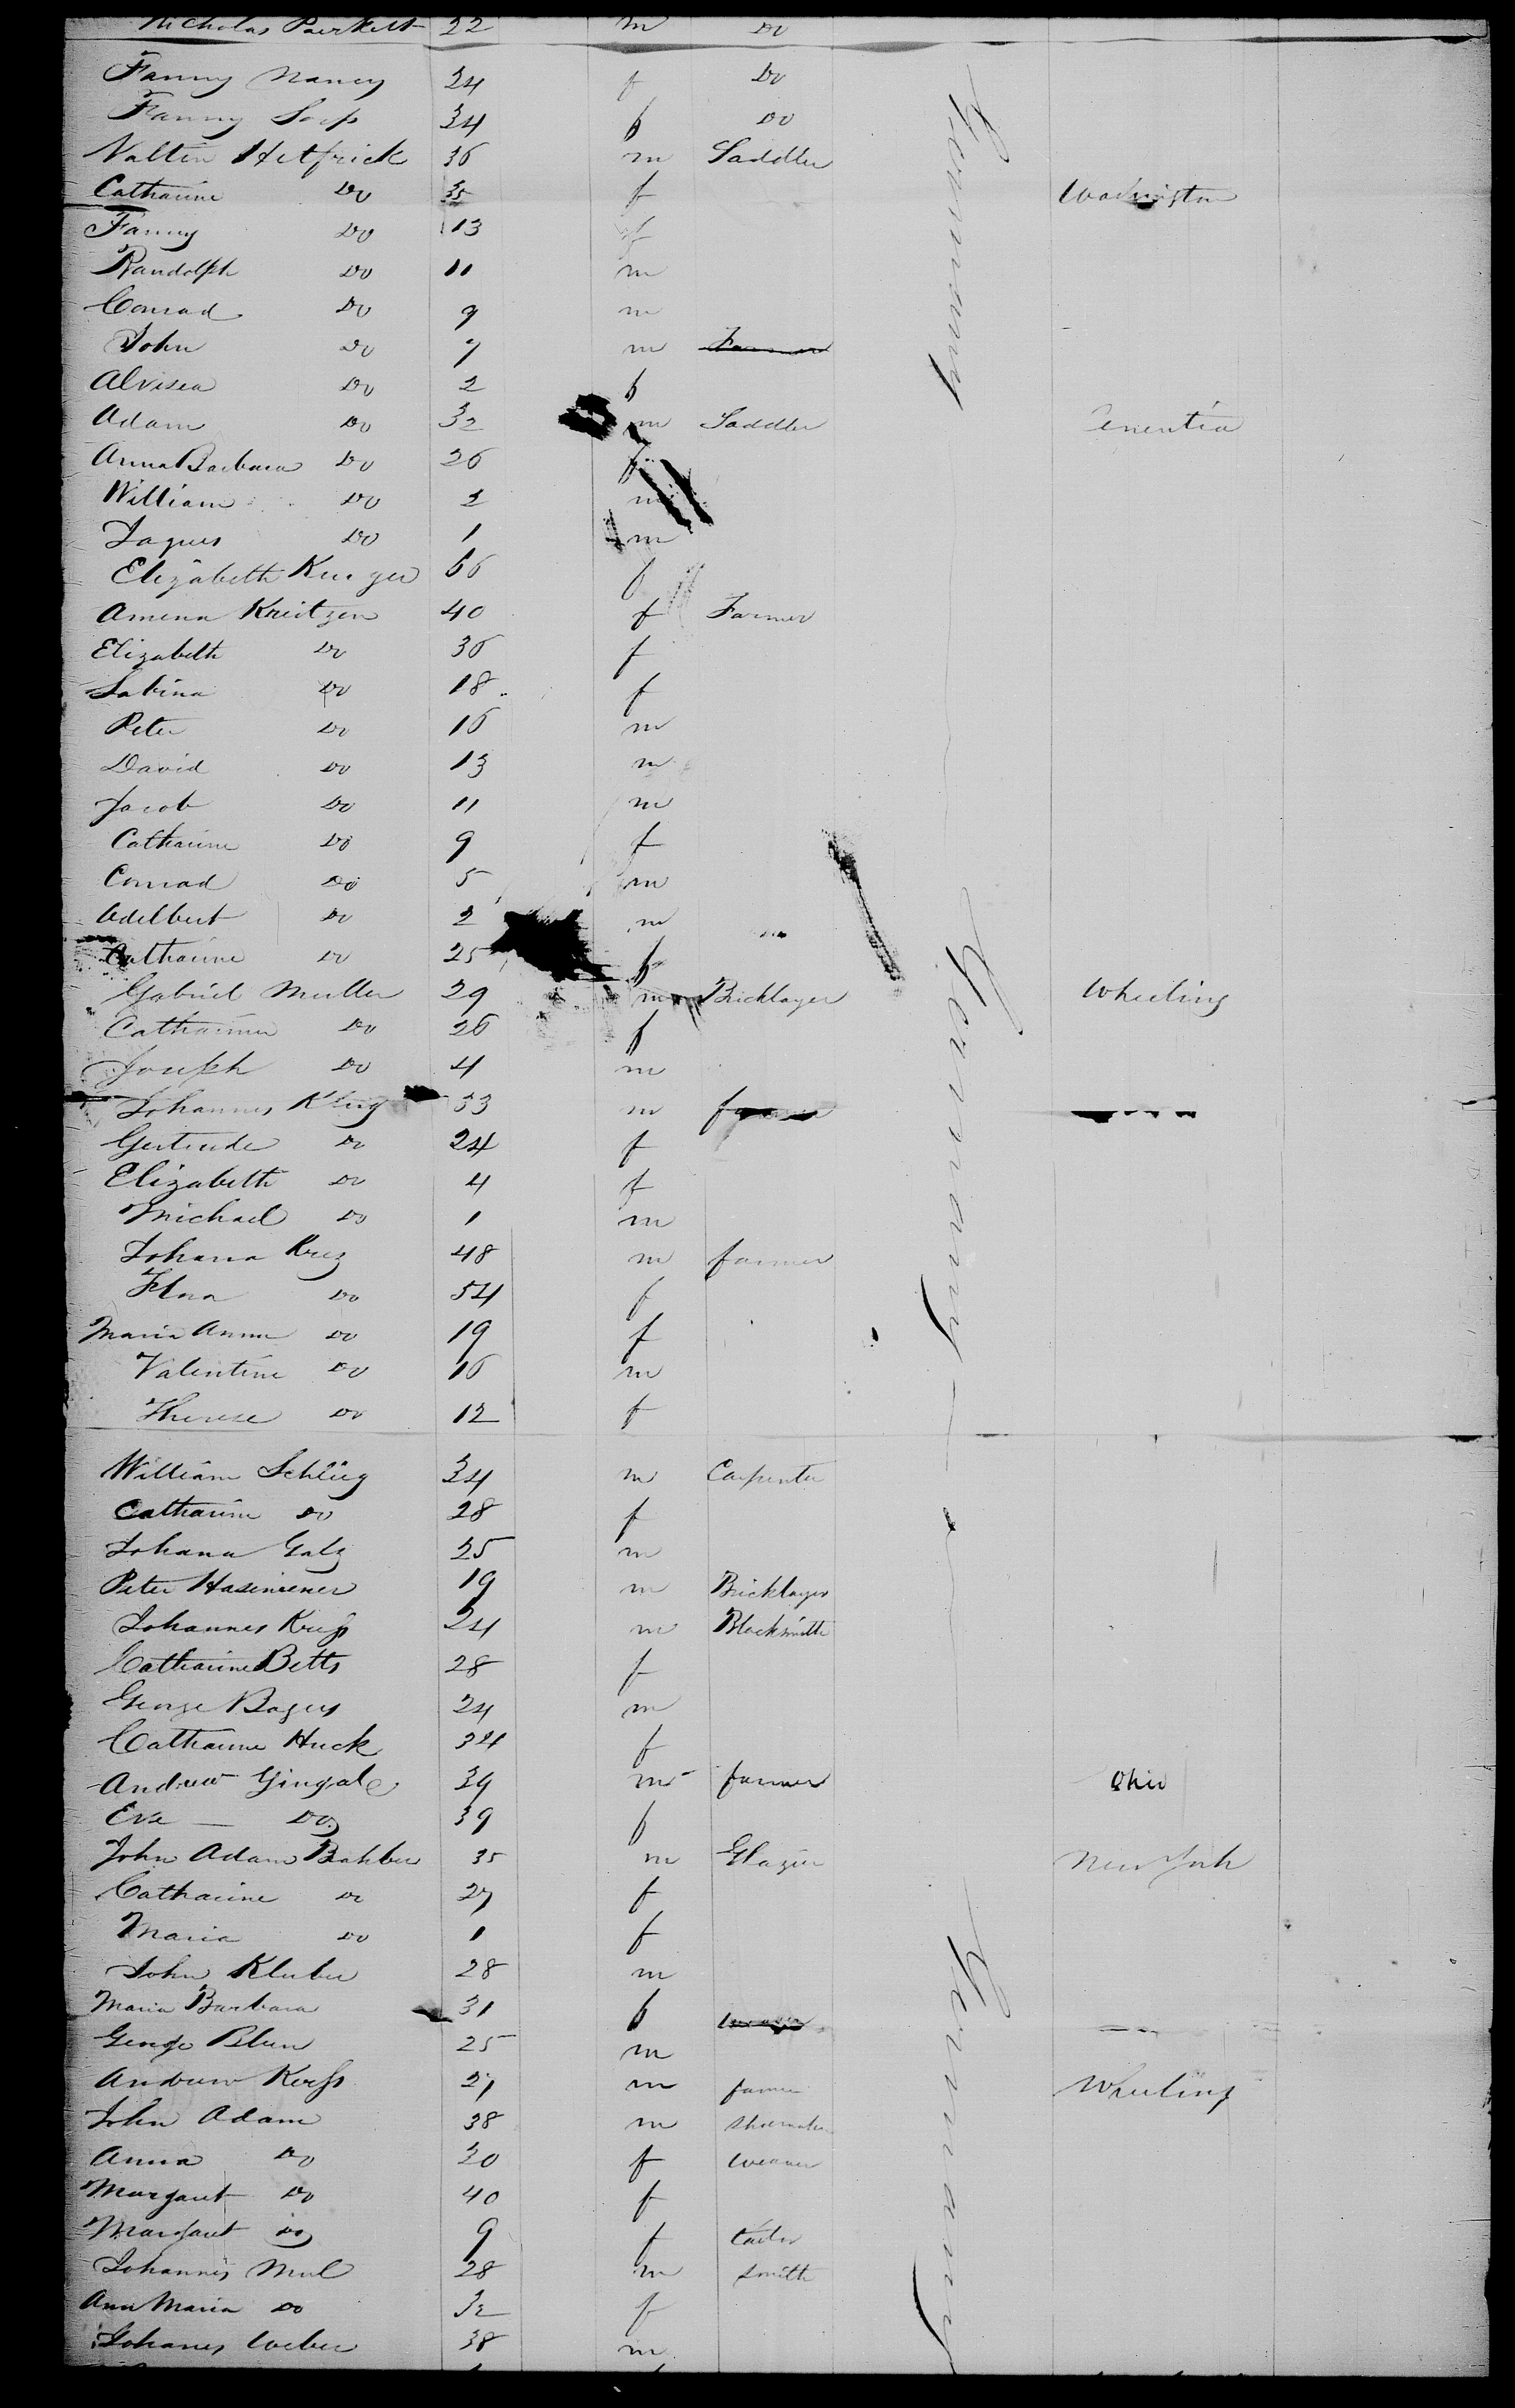 Nicholas Perkett 22 m Do
Fanny Nancy 24 f Do
Fanny 34 f Do
Valtin Hetfrick 36 m Saddler
Catharine Do 35 f Washington
Fanny Do 13 f
Randolph Do 11 m
Conrad Do 9 m
John Do 7 m Farmer
Alvisea Do 2 f
Adam Do 32 m Saddler
Anna Barbara Do 26 f
William Do 2 m
Jaques Do 1 m
Elizabeth 66 f
Amena Kreitzen 40 f Farmer
Elizabeth Do 36 f
Sabina Do 18 f
Peter Do 16 m
David Do 13 m
Jacob Do 11 m
Catharine Do 9 f
Conrad Do 5 m
Adelbert Do 2 m
Catharine Do 25 f
Gabriel Muller 29 m Bricklayer Wheeling
Catharine Do 26 f
Joseph Do 4 m
Johannes Klug 33 m farmer
Gertrude Do 24 f
Elizabeth Do 4 f
Michael Do 1 m
Johana Kruz 48 m farmer
Do 54 f
Maria Anna Do 19 f
Valentine Do 16 m
Therese Do 12 f
William Schlüg 34 m Carpenter
Catharine Do 28 f
Johana Galz 25 m
Peter 19 m Bricklayer
Johannes Kress 24 m Blacksmith
Catharine Betts 28 f
George Bagus 24 m
Catharine Huck 34 f
Andrew Gingale 39 m farmer Ohio
Eva — Do 39 f
John Adam Bahber 35 m Glazier New York
Catharine Do 27 f
Maria Do 1 f
John Kluber 28 m
Maria Barbara 31 f
George Blum 25 m
Andrew Kress 27 m farmer Wheeling
John Adam 38 m Shoemaker
Anna Do 30 f weaver
Margaret Do 40 f
Margaret Do 9 f tailor
Johannes Mul 28 m smith
Ann Maria Do 32 f
Johanes Weber 38 m
Germany
Germany
Germany